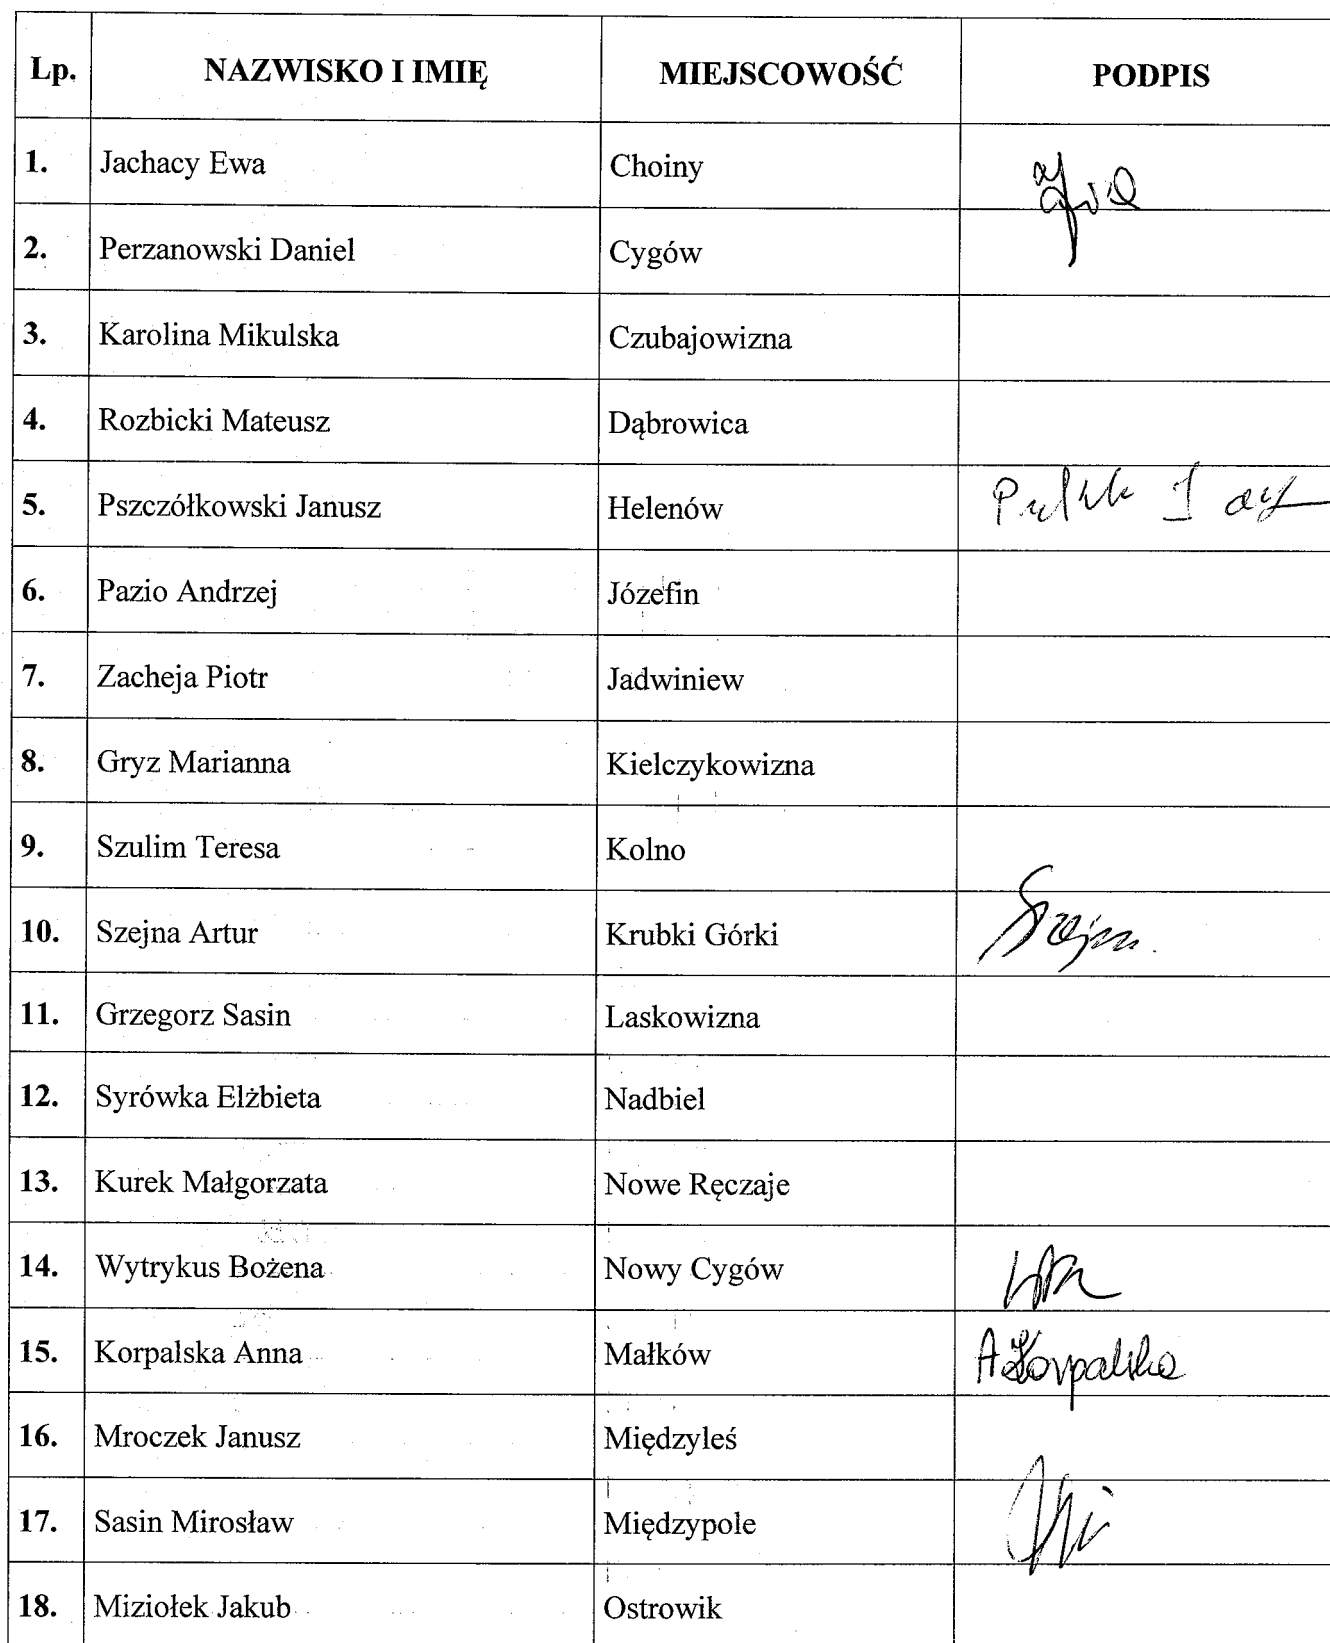 Lp. NAZWISKO I IMIĘ MIEJSCOWOŚĆ PODPIS
1. Jachacy Ewa Choiny
2. Perzanowski Daniel Cygów
3. Karolina Mikulska Czubajowizna
4. Rozbicki Mateusz Dąbrowica
5. Pszczółkowski Janusz Helenów
6. Pazio Andrzej Józefin
7. Zacheja Piotr Jadwiniew
8. Gryz Marianna Kielczykowizna
9. Szulim Teresa Kolno
10. Szejna Artur Krubki Górki
11. Grzegorz Sasin Laskowizna
12. Syrówka Elżbieta Nadbiel
13. Kurek Małgorzata Nowe Ręczaje
14. Wytrykus Bożena Nowy Cygów
15. Korpalska Anna Małków A Korpalska
16. Mroczek Janusz Międzyleś
17. Sasin Mirosław Międzypole
18. Miziołek Jakub Ostrowik